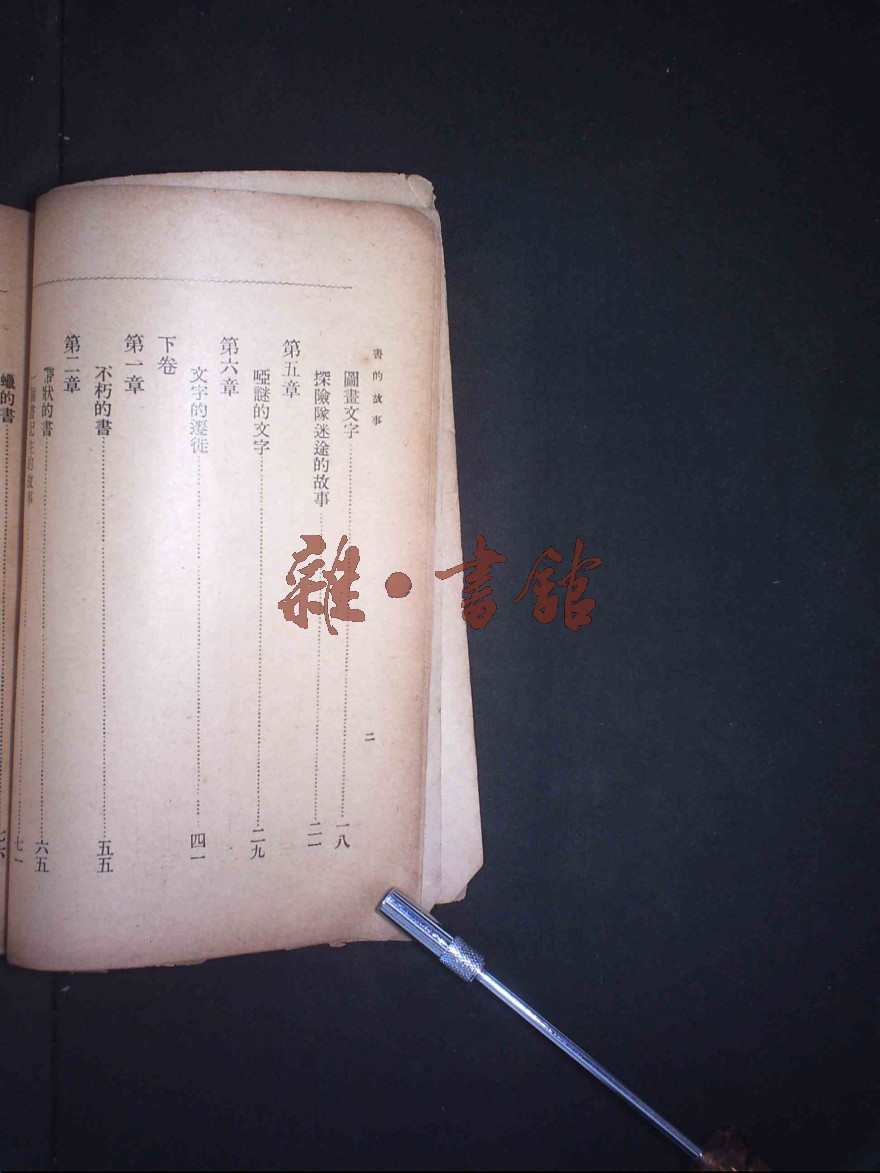 書的故事
二
圖畫文字……一八
探險隊迷途的故事……二一
第五章
啞謎的文字……二九
第六章
文字的遷徙……四一
下卷
第一章
不朽的書……五五
第二章
帶狀的書……六五
的故事……七一
蠟的書……七六
雜·書館